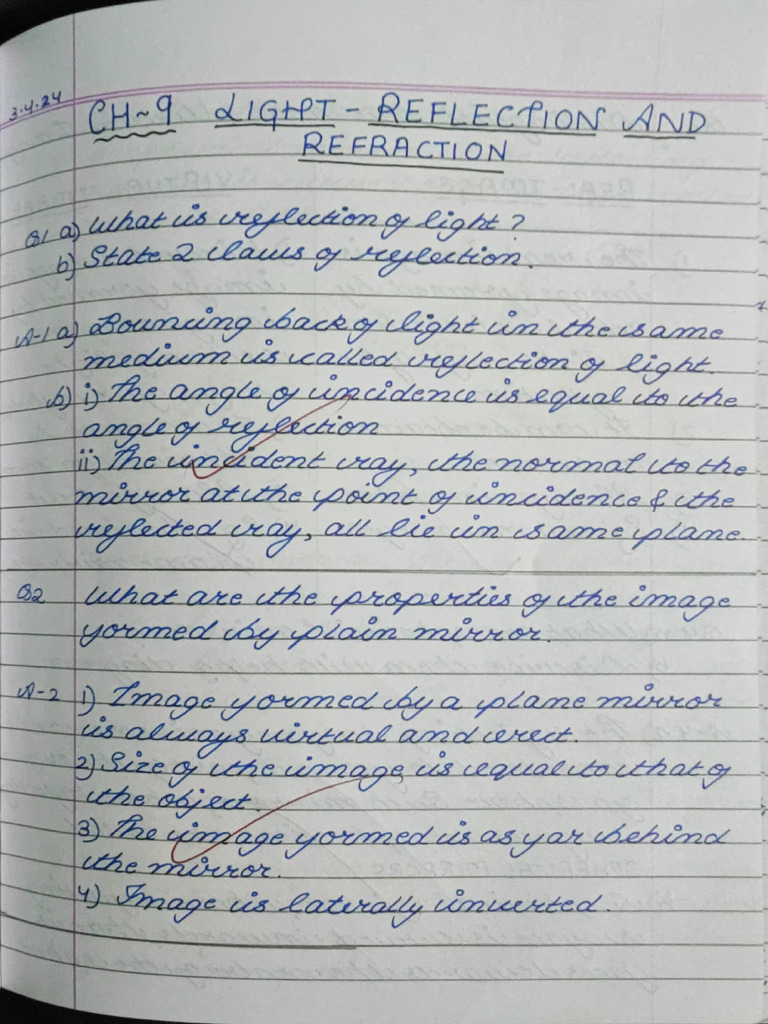 3.4.24
CH~9 LIGHT - REFLECTION AND
REFRACTION
Q1 a) What is reflection of light ?
b) State 2 laws of reflection.
A-1 a) Bouncing back of light in the same
medium is called reflection of light.
b) i) The angle of incidence is equal to the
angle of reflection
ii) The incident ray, the normal to the
mirror at the point of incidence & the
reflected ray, all lie in same plane.
Q2 What are the properties of the image
formed by plain mirror.
A-2 1) Image formed by a plane mirror
is always virtual and erect.
2) Size of the image is equal to that of
the object.
3) The image formed is as far behind
the mirror.
4) Image is laterally inverted.